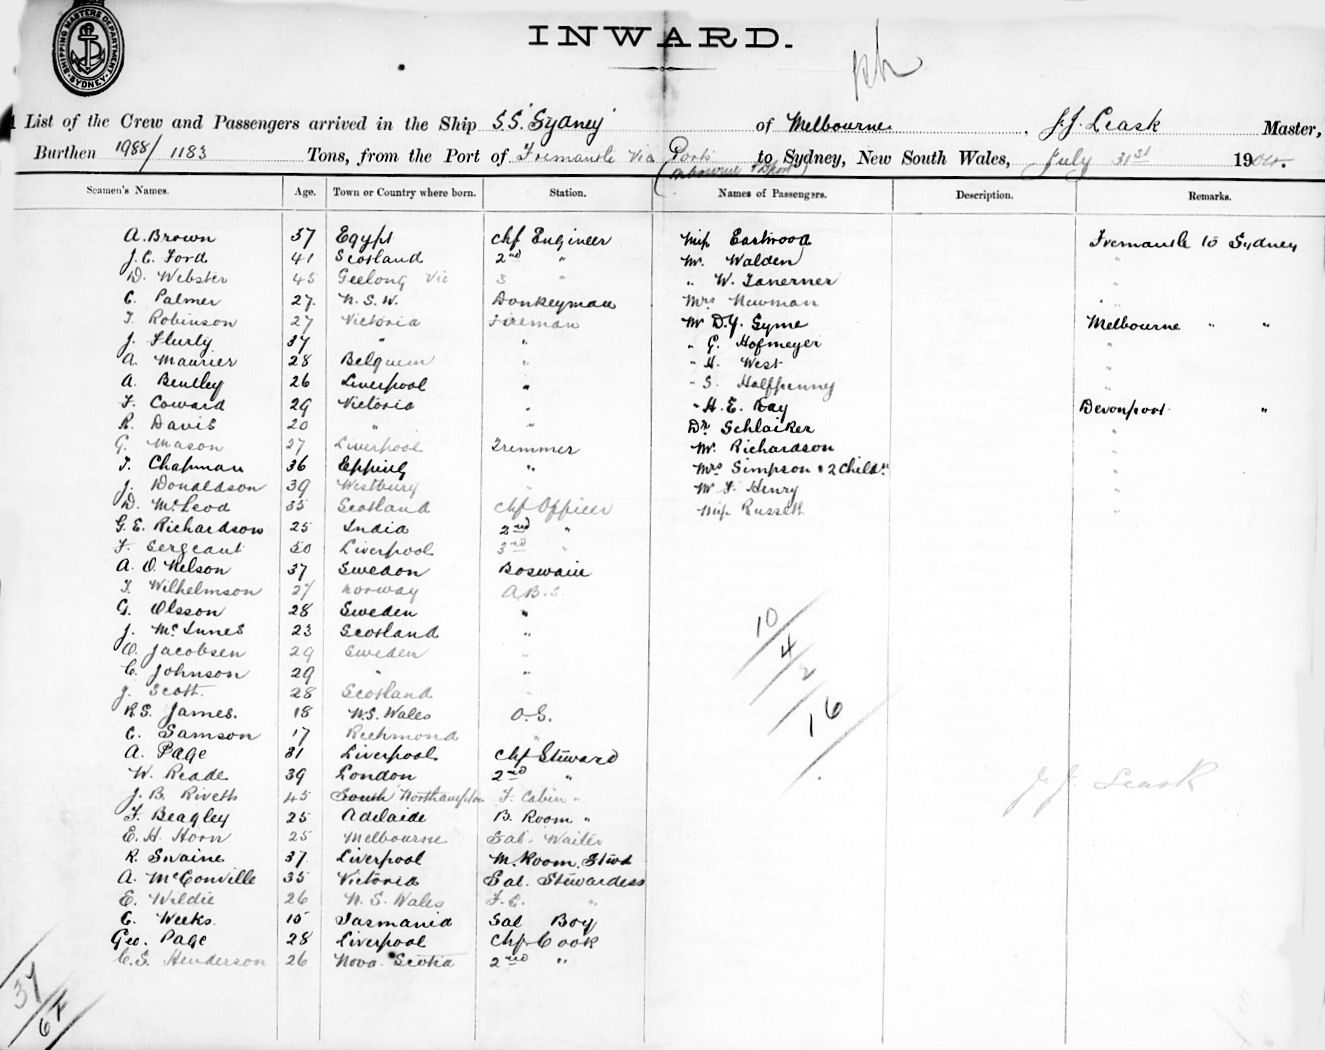 SHIPPING MASTERS DEPARTMENT SYDNEY
INWARD.
List of the Crew and Passengers arrived in the Ship S.S. Sydney of Melbourne. J.J. Leask Master,
Burthen 1988/1183 Tons, from the Port of Fremantle via Ports to Sydney, New South Wales, July 31st 190
Seamen's Names. Age. Town or Country where born. Station. Names of Passengers. Description. Remarks.
A. Brown 37 Egypt Chf Engineer Miss Eastwood Fremantle to Sydney
J.C. Ford 41 Scotland 2nd " Mr. Walden "
D. Webster 45 Geelong Vic 3 " " W. Tanerner "
C. Palmer 27. N.S.W. Donkeyman Mrs Newman "
T. Robinson 27 Victoria Fireman Mr D.Y. Syme Melbourne " "
J. Flurty 34 " " " G. Hofmeyer "
A. Maurier 28 Belguem " " H. West "
A. Bentley 26 Liverpool " " S. Halfpenny "
F. Coward 29 Victoria " " H.E. Day Devonport "
R. Davis 20 " " Dr Schlaiker "
G. Mason 27 Liverpool Trimmer Mr. Richardson "
T. Chapman 36 Epping " Mrs Simpson & 2 Childn "
J. Donaldson 39 Westbury " Mr F. Henry "
D. McLeod 35 Scotland Chf Officer Miss Russell "
G.E. Richardson 25 India 2nd "
F. Sergeant 50 Liverpool 3rd "
A.O. Nelson 37 Sweedon Boswain
T. Wilhelmson 27 Norway A.B.S.
G. Olsson 28 Sweden "
J. McInnes 23 Scotland "
O. Jacobsen 29 Sweden "
C. Johnson 29 " "
J. Scott. 28 Scotland "
R.S. James. 18 N.S. Wales O.S.
C. Samson 17 Richmond "
A. Page 31 Liverpool Chf Steward
W. Reade 39 London 2nd "
J.B. Rivetts 45 South Northampton F. Cabin "
F. Beagley 25 Adelaide B. Room "
E.H. Horn 25 Melbourne Sal. Waiter
R. Swaine 37. Liverpool M. Room. Stwd
A. McConville 35 Victoria Sal. Stewardess
E. Wildie 26 N.S. Wales F.C. "
C. Weeks. 15 Tasmania Sal Boy
Geo. Page 28 Liverpool Chf Cook
C.S. Henderson 26 Nova Scotia 2nd "
10
4
2
16
J.J. Leask
37
67